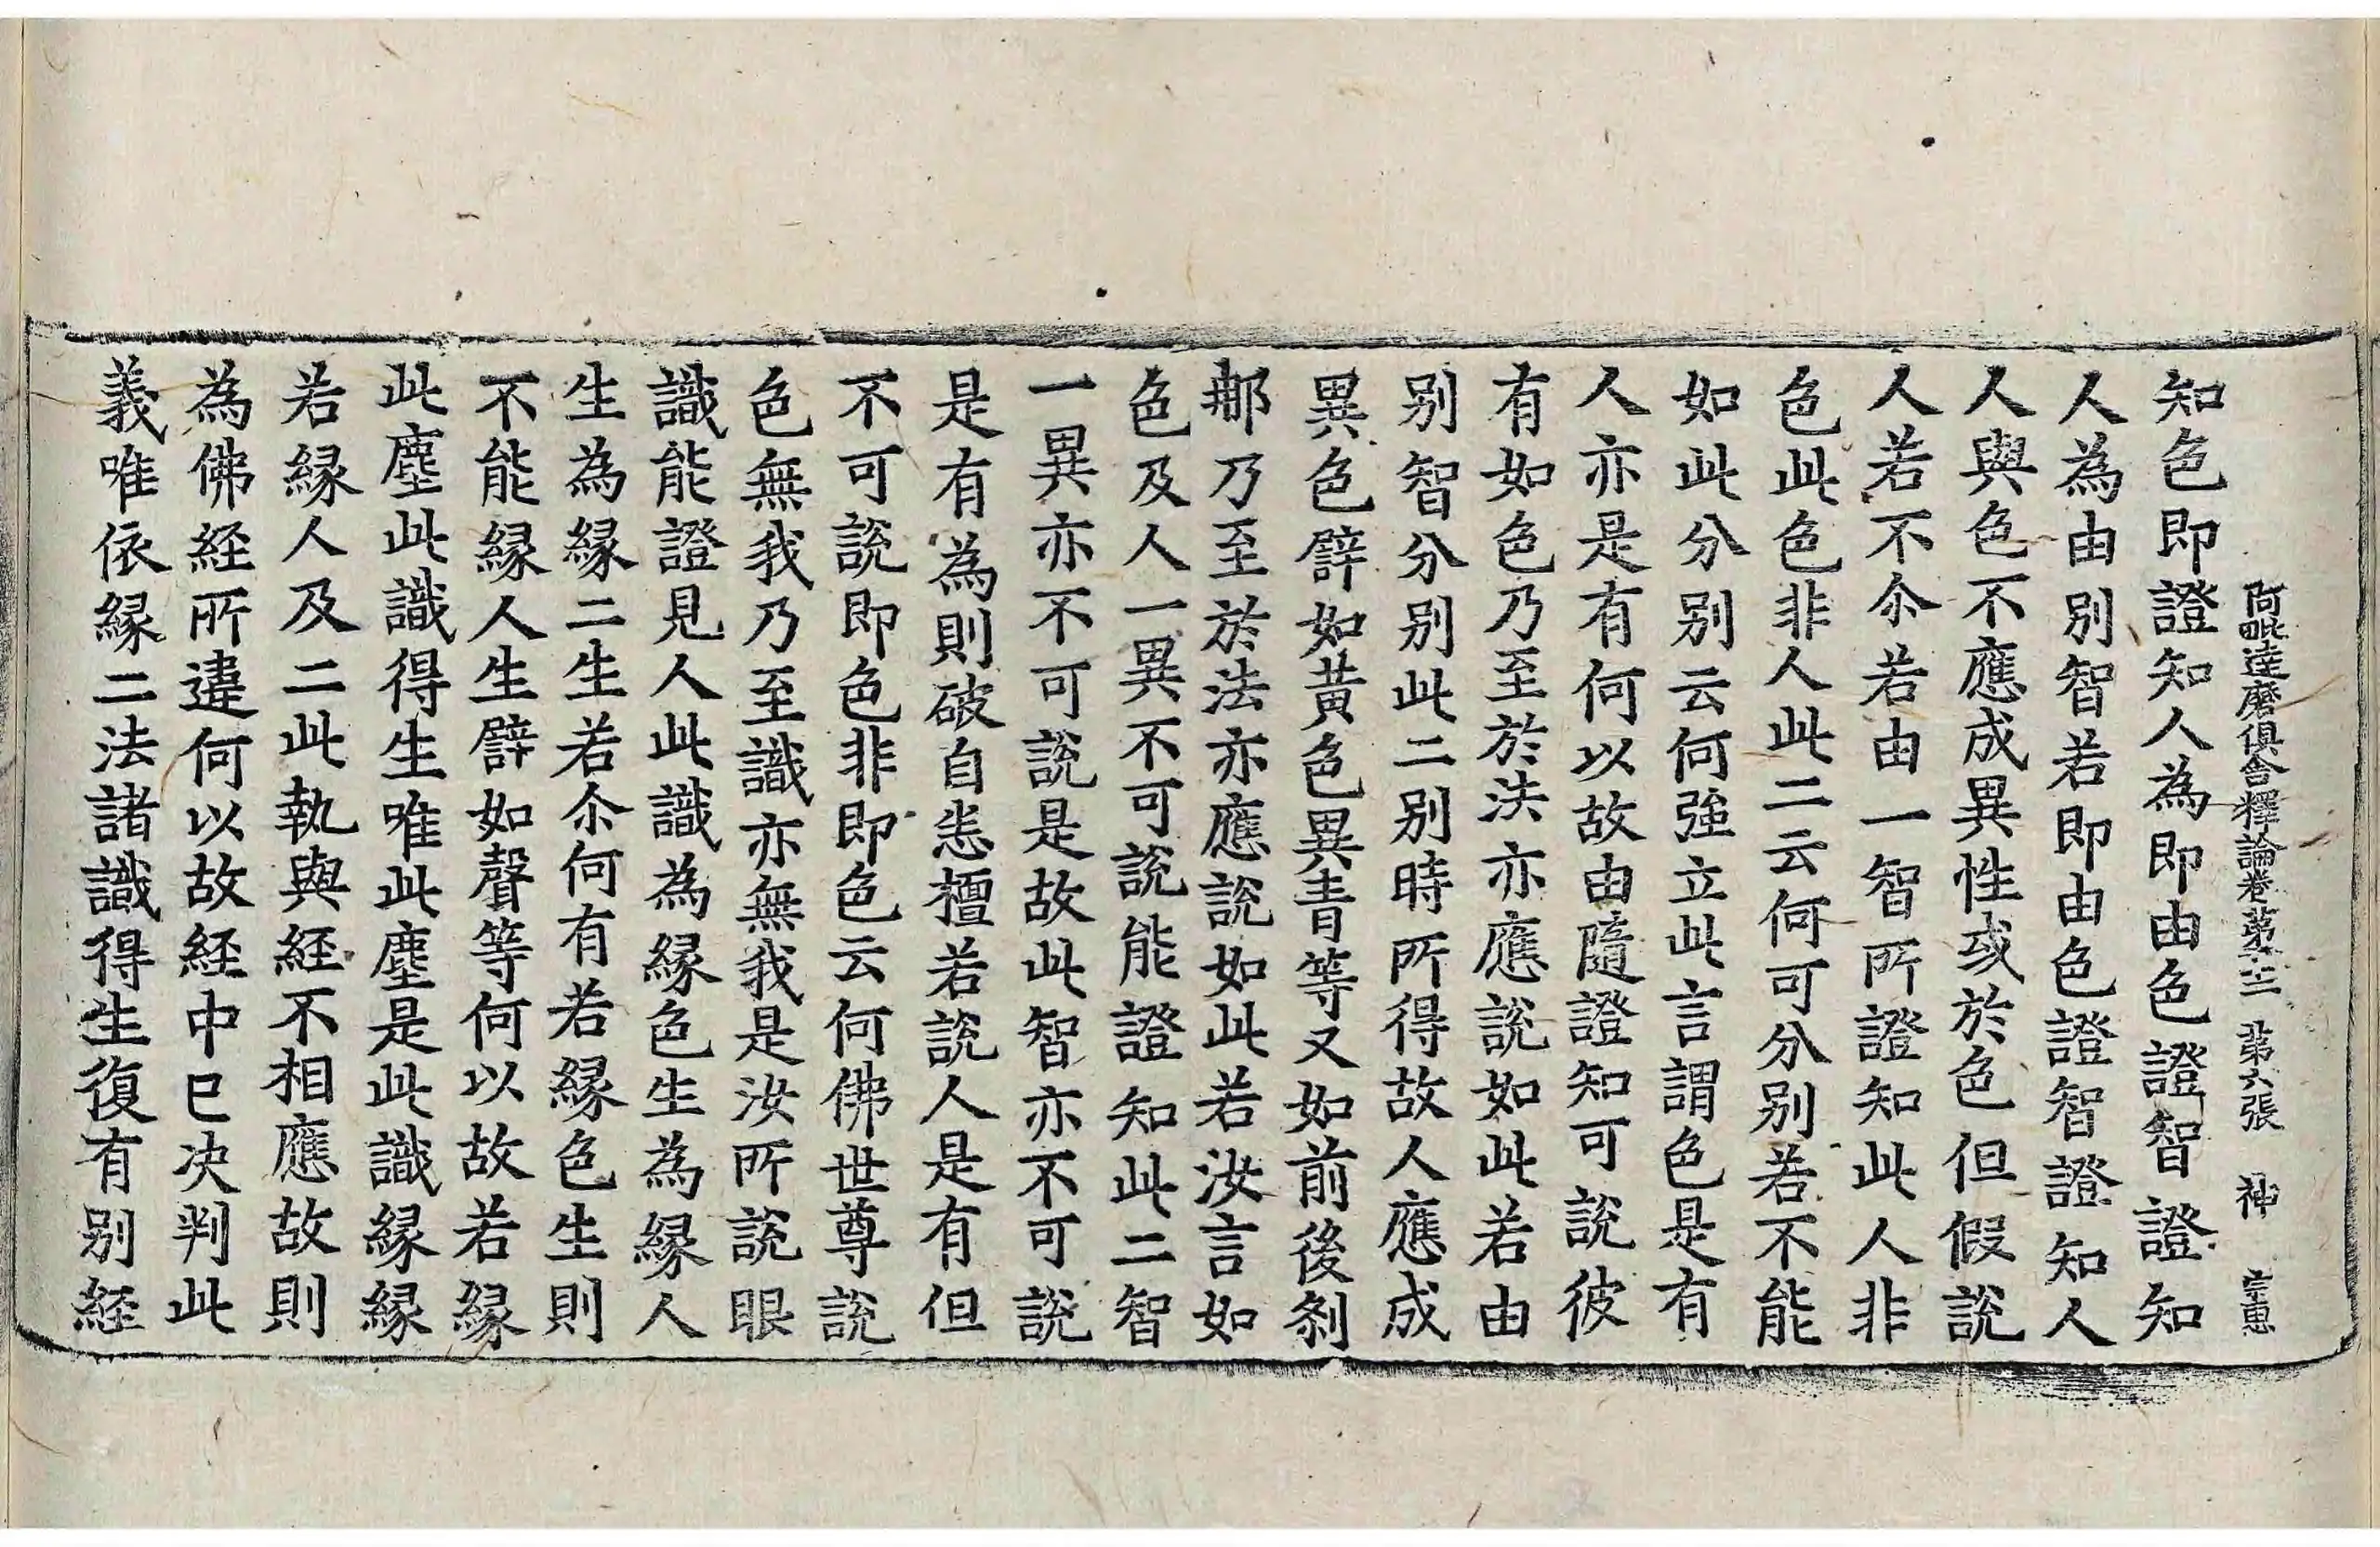 阿毗達磨俱舍釋論卷第二十二 第六張 神 宗惠
知色即證知人為即由色證智證知
人為由別智若即由色證智證知人
人與色不應成異性或於色但假說
人若不尒若由一智所證知此人非
色此色非人此二云何可分別若不能
如此分別云何強立此言謂色是有
人亦是有何以故由隨證知可說彼
有如色乃至於法亦應說如此若由
別智分別此二別時所得故人應成
異色譬如黃色異青等又如前後剎
那乃至於法亦應說如此若汝言如
色及人一異不可說能證知此二智
一異亦不可說是故此智亦不可說
是有為則破自悉檀若說人是有但
不可說即色非即色云何佛世尊說
色無我乃至識亦無我是汝所說眼
識能證見人此識為緣色生為緣人
生為緣二生若尒何有若緣色生則
不能緣人生譬如聲等何以故若緣
此塵此識得生唯此塵是此識緣緣
若緣人及二此執與經不相應故則
為佛經所違何以故經中已決判此
義唯依緣二法諸識得生復有別經